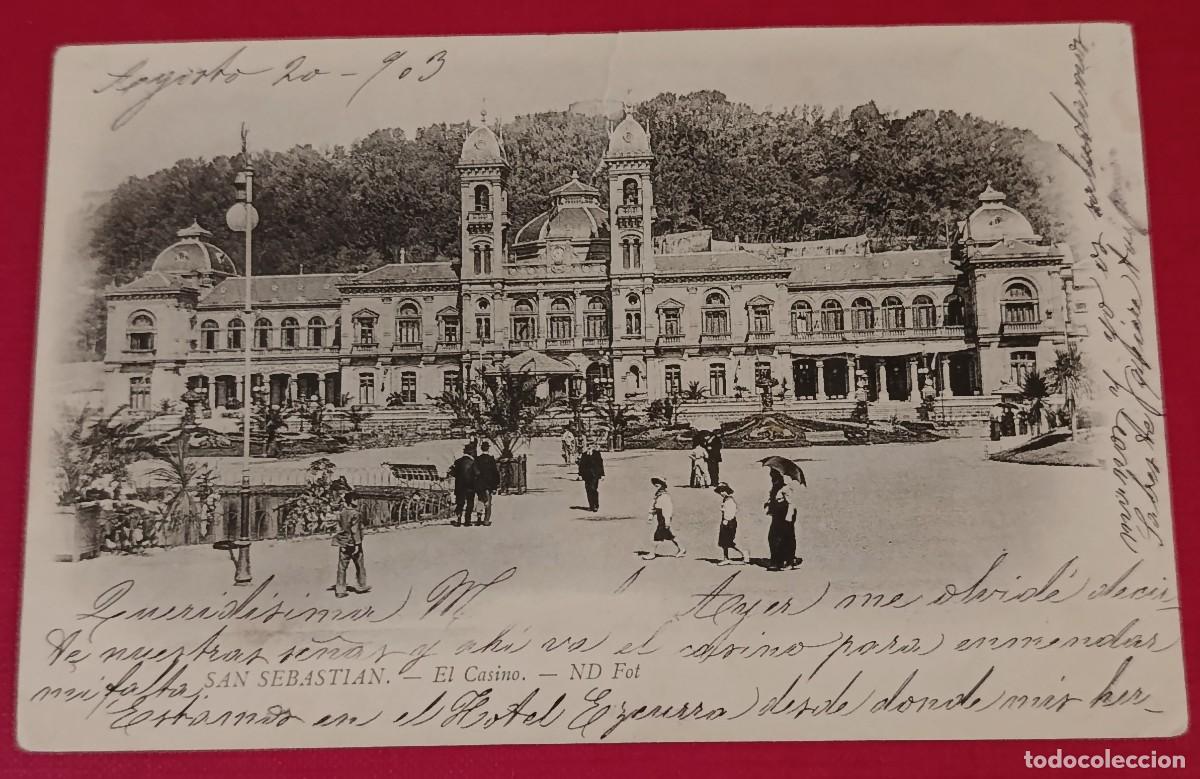 Agosto 20-903
Queridísima M Ayer me olvidé decir-
te nuestras señas y ahí va el casino para enmendar
mi falta.
SAN SEBASTIAN. — El Casino. — ND Fot
Estamos en el Hotel Ezcurra desde donde mis her-
manos y yo os saludamos
todocoleccion